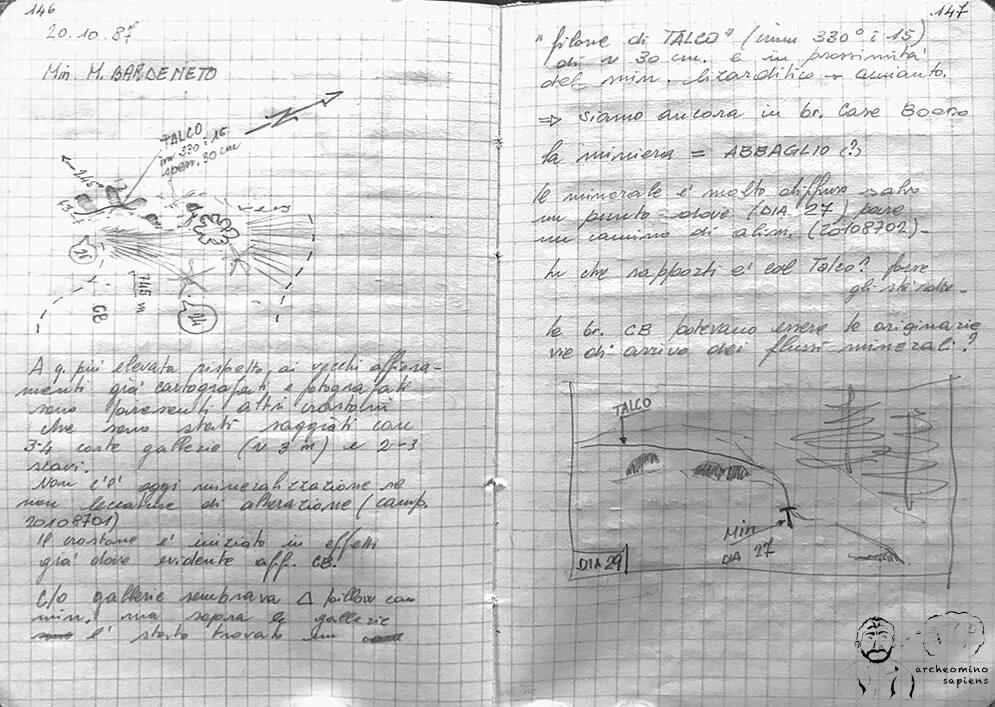 146
20.10.87
Min. M. BARDENETO
TALCO
imm 330 i 15
spess. 30 cm
245°
745 m
CB
A q. più elevata rispetto ai vecchi affiora-
menti già cartografati e fotografati
sono presenti altri crostoni
che sono stati saggiati con
3-4 corte gallerie (~ 3 m) e 2-3
scavi.
Non c'è oggi mineralizzazione se
non leccature di alterazione (camp.
20108701)
Il crostone è iniziato in effetti
già dove evidente aff. CB.
c/o gallerie sembrava Δ pillow con
min. ma sopra le gallerie
è stato trovato un
147
"filone di TALCO" (imm 330° i 15)
di ~ 30 cm. e in prossimità
del min. lizarditico → amianto.
⇒ siamo ancora in br. Case Boeno
la miniera = ABBAGLIO (?)
le minerale è molto diffuso salvo
un punto dove (DIA 27) pare
un camino di alim. (20108702)-
In che rapporti è col Talco? forse
gli stessi
le br. CB potevano essere le originarie
vie di arrivo dei flussi minerali?
TALCO
Min
DIA 27
DIA 29
archeomino
sapiens